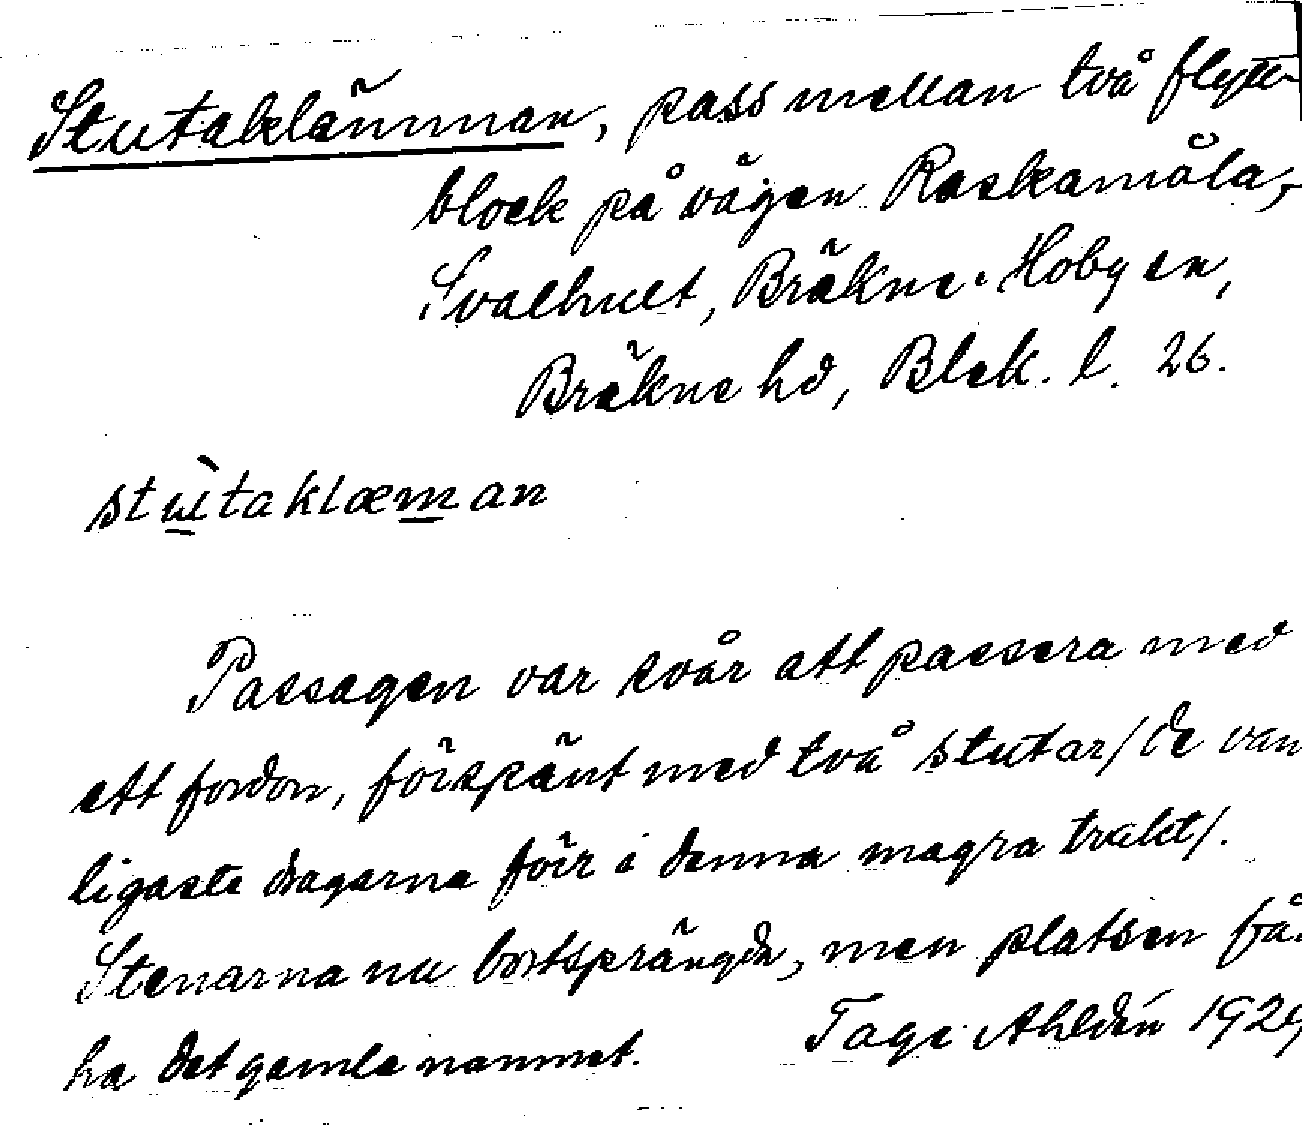 Stutaklämman, pass mellan två flytt-
block på vägen Raskamåla,-
Svalhult, Bräkne-Hoby sn,
Bräkne hd, Blek. l. 26.
stùtaklæman
Passagen var svår att passera med
ett fordon, förspänt med två stutar/de van
ligaste dragarna förr i denna magra trakt/.
Stenarna nu bortsprängda, men platsen får
ha det gamla namnet. Tage Ahldén 192